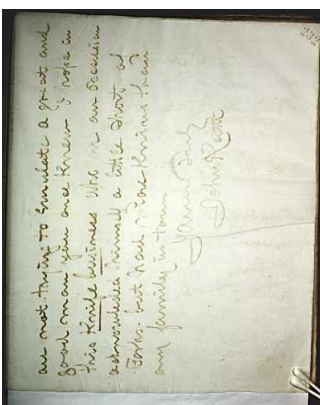 are not trying to Emulate a great and
good man you once knew I hope in
this Knife business who on an occasion
acknowledged himself a little short of
Forks. but had more Knives than
any family in town
Yours Truly
John R
222